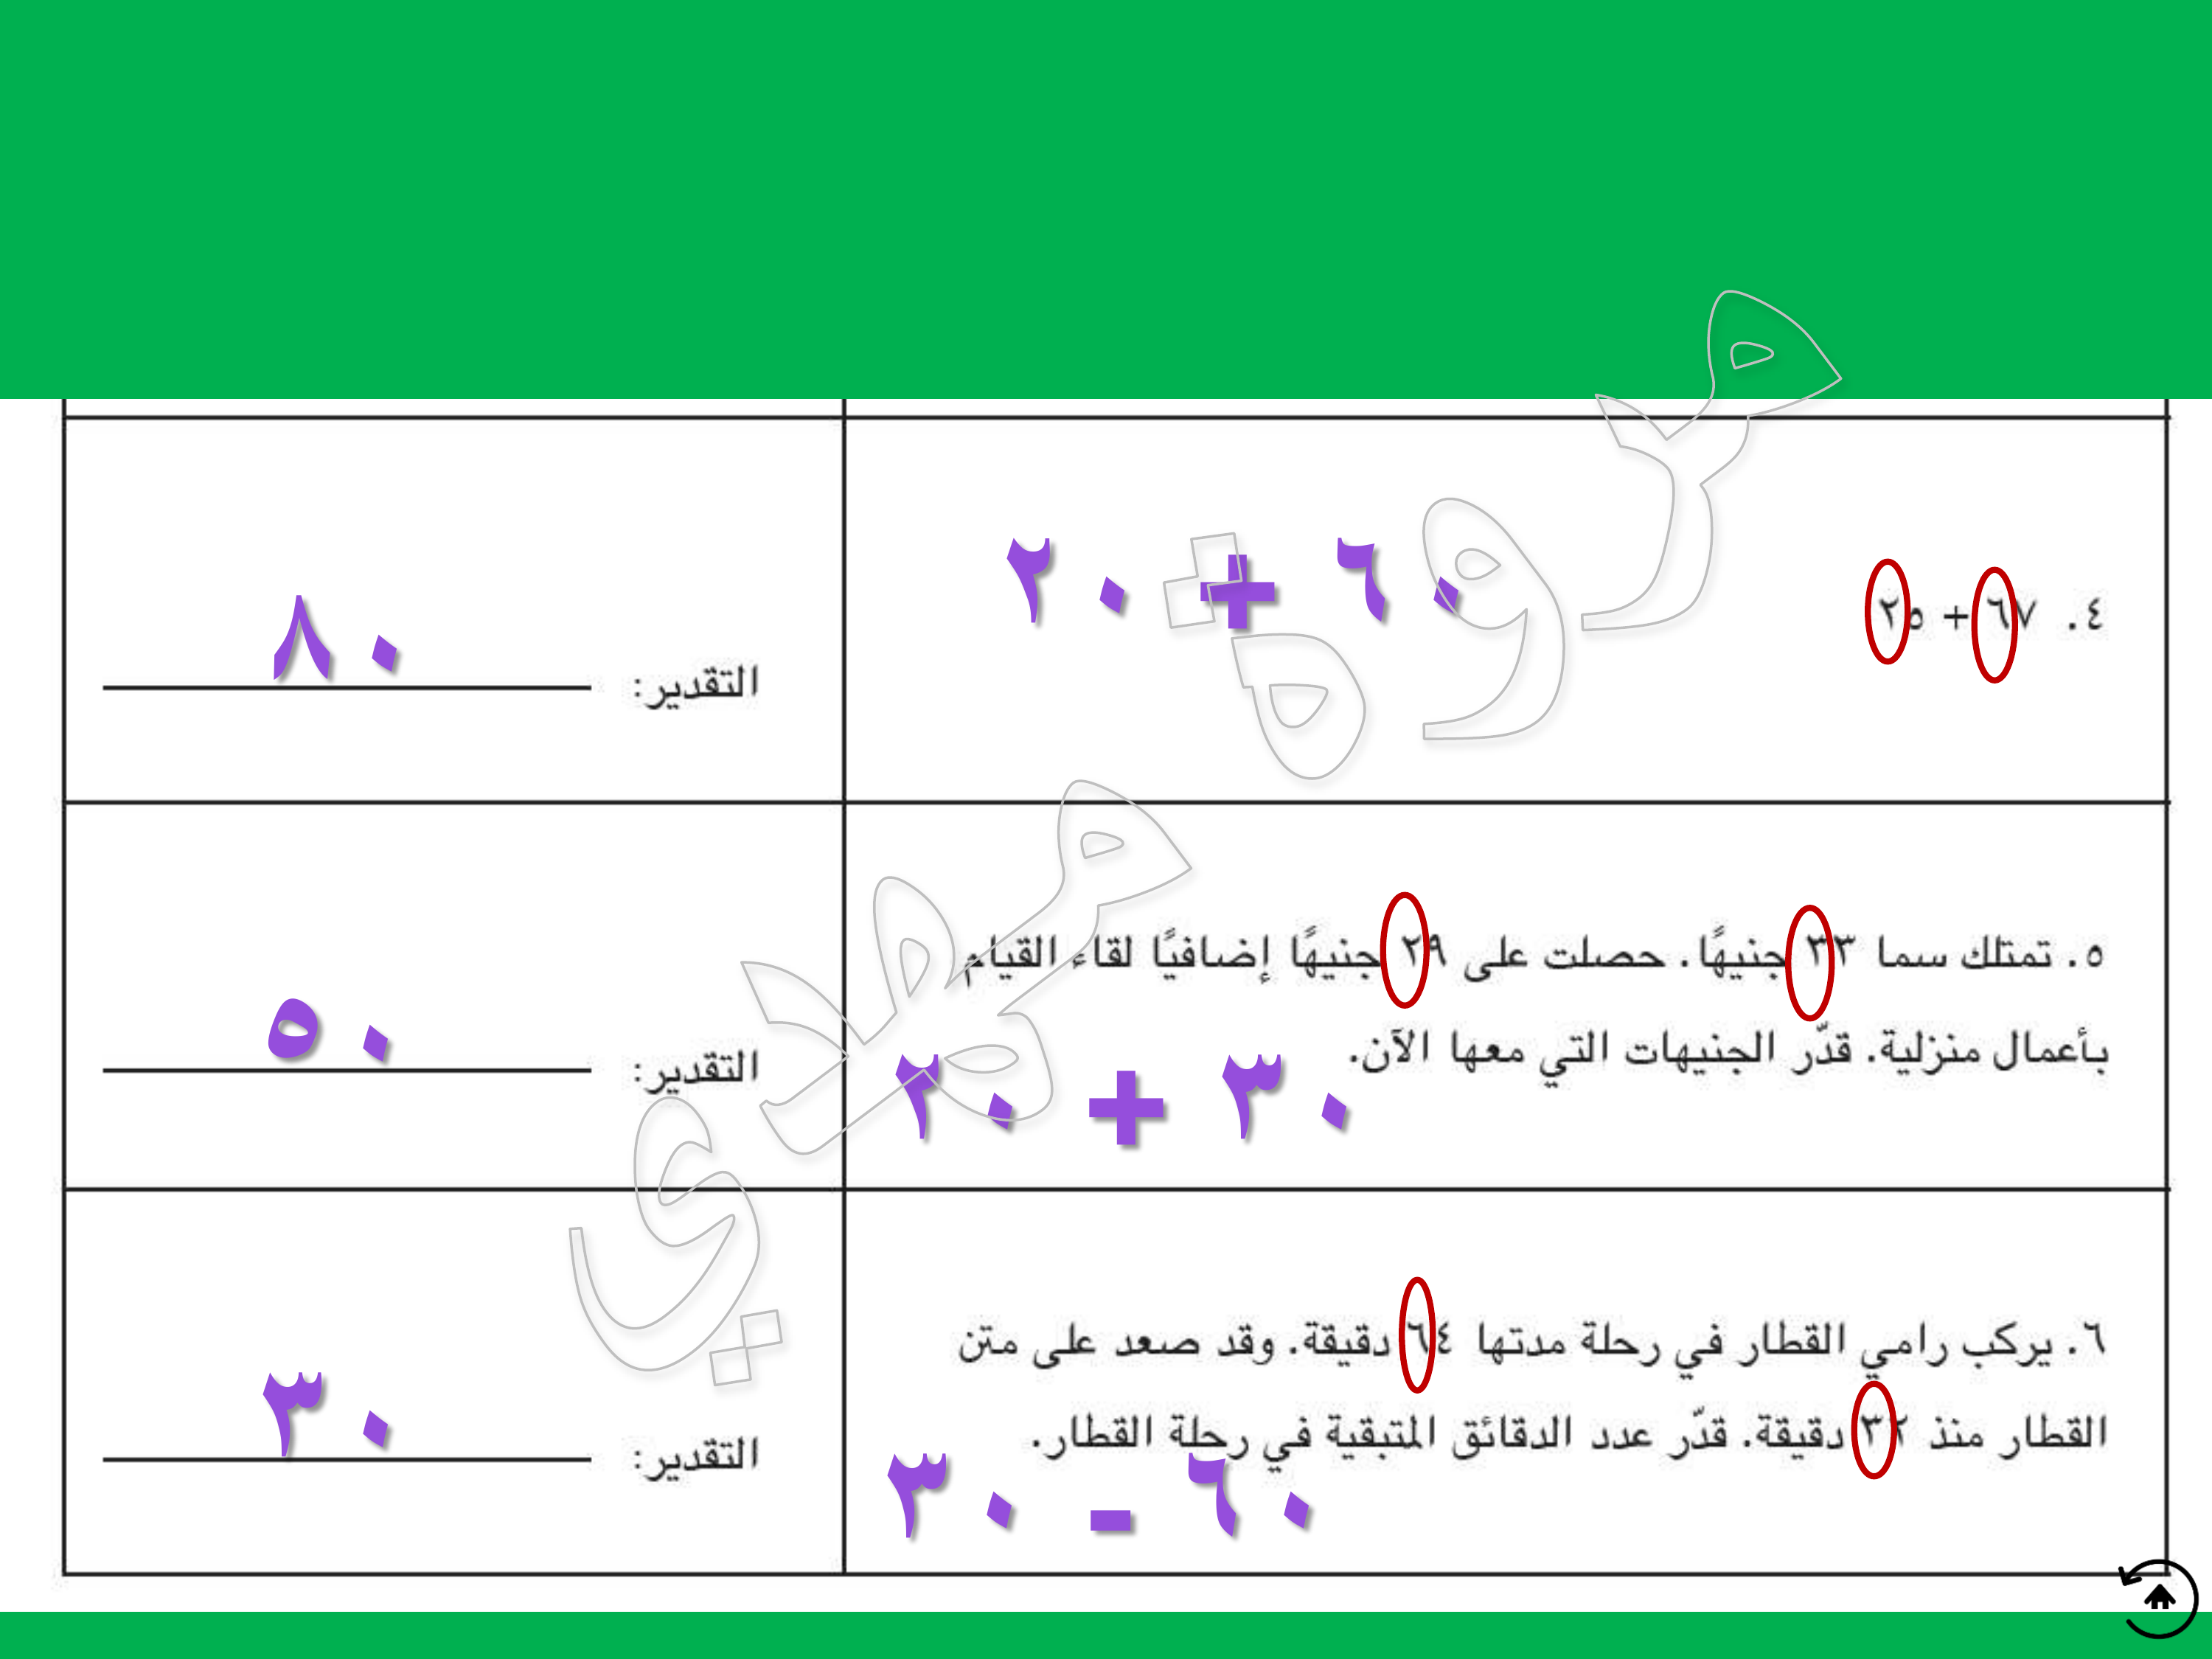 ٤. ٦٧ + ٢٥
٦٠ + ٢٠
التقدير: ٨٠
٥. تمتلك سما ٣٣ جنيهًا. حصلت على ٢٩ جنيهًا إضافيًا لقاء القيام
بأعمال منزلية. قدّر الجنيهات التي معها الآن.
٣٠ + ٢٠
التقدير: ٥٠
٦. يركب رامي القطار في رحلة مدتها ٦٤ دقيقة. وقد صعد على متن
القطار منذ ٣٢ دقيقة. قدّر عدد الدقائق المتبقية في رحلة القطار.
٦٠ - ٣٠
التقدير: ٣٠
مروة مهدي